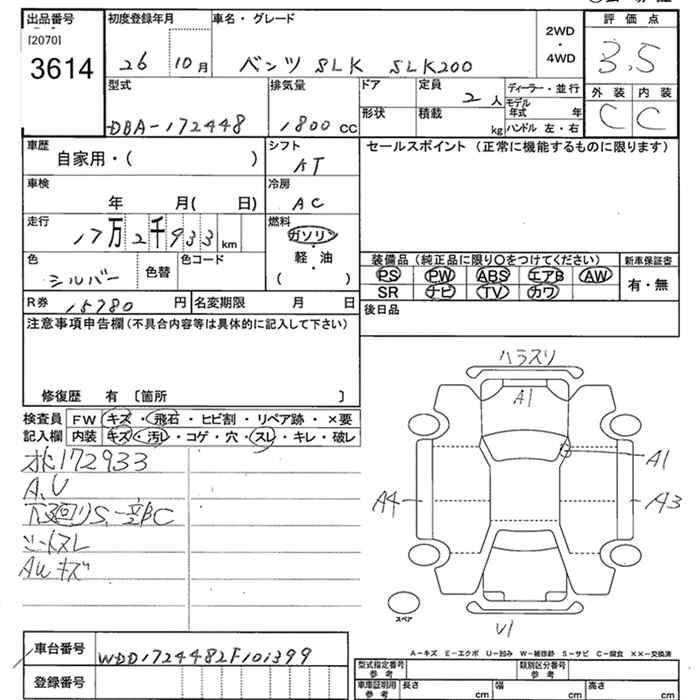 出品番号
[2070]
3614
初度登録年月
26 10月
車名・グレード
ベンツ SLK SLK200
2WD
・
4WD
評価点
3.5
外装 内装
C C
型式
DBA-172448
排気量
1800 CC
ドア
形状
定員
2人
積載
kg
ディーラー・並行
モデル年式 年
ハンドル 左・右
車歴
自家用・( )
シフト
AT
車検
年 月( 日)
冷房
AC
走行
17万2千933km
燃料
ガソリン
・
軽・油
( )
色
シルバー
色替
色コード
R券 15780円
名変期限 月 日
セールスポイント(正常に機能するものに限ります)
装備品(純正品に限り○をつけてください)
新車保証書
PS PW ABS エアB AW
SR ナビ TV カワ
有・無
後日品
注意事項申告欄(不具合内容等は具体的に記入して下さい)
修復歴 有 〔箇所 〕
検査員記入欄
FW キズ・飛石・ヒビ割・リペア跡・×要
内装 キズ・汚レ・コゲ・穴・スレ・キレ・破レ
172933
A、U
下廻りS、一部C
シートスレ
AWキズ
ハラスリ
A1
A1
A4
A3
U1
スペア
A-キズ E-エクボ U-凹み W-補修跡 S-サビ C-腐食 XX-交換済
車台番号
WDD1724482F101399
登録番号
型式指定番号
参考
類別区分番号
参考
車庫証明用
参考
長さ cm
幅 cm
高さ cm